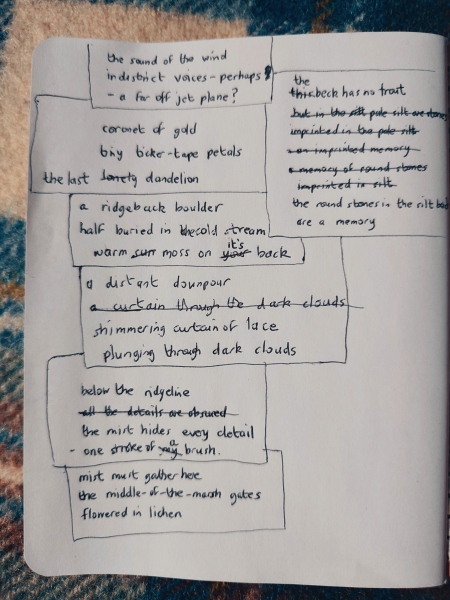 the sound of the wind
indistrict voices - perhaps?
- a far off jet plane?
coronet of gold
tiny ticker-tape petals
the last lonely dandelion
a ridgeback boulder
half buried in the cold stream
warm sun moss on your it's back
a distant downpour
a curtain through the dark clouds
shimmering curtain of lace
plunging through dark clouds
below the ridgeline
all the details are obscured
the mist hides every detail
- one stroke of a brush.
mist must gather here
the middle-of-the-marsh gates
flowered in lichen
the
this beck has no trout
but in the silt pale silt are stones
imprinted in the pale silt
an imprinted memory
a memory of round stones
imprinted in silt
the round stones in the silt bed
are a memory